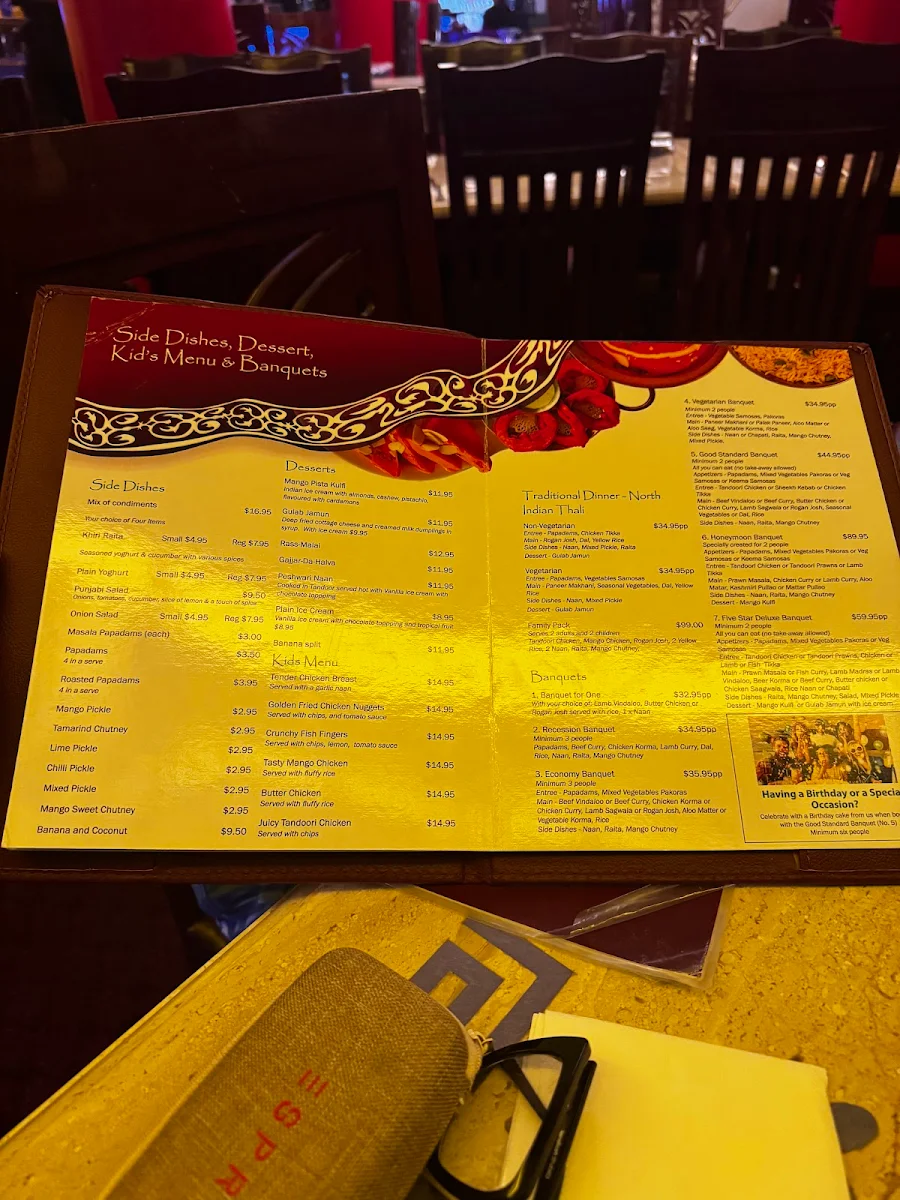 Side Dishes, Dessert,
Kid's Menu & Banquets
Side Dishes
Mix of condiments $16.95
Your choice of Four Items
Khiri Raita Small $4.95 Reg $7.95
Seasoned yoghurt & cucumber with various spices
Plain Yoghurt Small $4.95 Reg $7.95
Punjabi Salad $9.50
Onions, tomatoes, cucumber, slice of lemon & a touch of spice
Onion Salad Small $4.95 Reg $7.95
Masala Papadams (each) $3.00
Papadams $3.50
4 in a serve
Roasted Papadams $3.95
4 in a serve
Mango Pickle $2.95
Tamarind Chutney $2.95
Lime Pickle $2.95
Chilli Pickle $2.95
Mixed Pickle $2.95
Mango Sweet Chutney $2.95
Banana and Coconut $9.50
Desserts
Mango Pista Kulfi $11.95
Indian ice cream with almonds, cashew, pistachio,
flavoured with cardamons
Gulab Jamun $11.95
Deep fried cottage cheese and creamed milk dumplings in
syrup. With ice cream $9.95
Rass-Malai $12.95
Gajjar-Da Halva $11.95
Peshwari Naan $11.95
Cooked in Tandoor served hot with Vanilla ice cream with
chocolate toppping
Plain Ice Cream $8.95
Vanilla ice cream with chocolate topping and tropical fruit
$8.95
Banana split $11.95
Kids Menu
Tender Chicken Breast $14.95
Served with a garlic naan
Golden Fried Chicken Nuggets $14.95
Served with chips, and tomato sauce
Crunchy Fish Fingers $14.95
Served with chips, lemon, tomato sauce
Tasty Mango Chicken $14.95
Served with fluffy rice
Butter Chicken $14.95
Served with fluffy rice
Juicy Tandoori Chicken $14.95
Served with chips
Traditional Dinner - North
Indian Thali
Non-Vegetarian $34.95pp
Entree - Papadams, Chicken Tikka
Main - Rogan Josh, Dal, Yellow Rice
Side Dishes - Naan, Mixed Pickle, Raita
Dessert - Gulab Jamun
Vegetarian $34.95pp
Entree - Papadams, Vegetable Samosas
Main - Paneer Makhani, Seasonal Vegetables, Dal, Yellow
Rice
Side Dishes - Naan, Mixed Pickle
Dessert - Gulab Jamun
Family Pack $99.00
Serves 2 adults and 2 children
Tandoori Chicken, Mango Chicken, Rogan Josh, 2 Yellow
Rice, 2 Naan, Raita, Mango Chutney,
Banquets
1. Banquet for One $32.95pp
With your choice of: Lamb Vindaloo, Butter Chicken or
Rogan Josh served with rice, 1 x Naan
2. Recession Banquet $34.95pp
Minimum 3 people
Papadams, Beef Curry, Chicken Korma, Lamb Curry, Dal,
Rice, Naan, Raita, Mango Chutney
3. Economy Banquet $35.95pp
Minimum 3 people
Entree - Papadams, Mixed Vegetables Pakoras
Main - Beef Vindaloo or Beef Curry, Chicken Korma or
Chicken Curry, Lamb Sagwala or Rogan Josh, Aloo Matter or
Vegetable Korma, Rice
Side Dishes - Naan, Raita, Mango Chutney
4. Vegetarian Banquet $34.95pp
Minimum 2 people
Entree - Vegetable Samosas, Pakoras
Main - Paneer Makhani or Palak Paneer, Aloo Matter or
Aloo Saag, Vegetable Korma, Rice
Side Dishes - Naan or Chapati, Raita, Mango Chutney,
Mixed Pickle,
5. Good Standard Banquet $44.95pp
Minimum 2 people
All you can eat (no take-away allowed)
Appetizers - Papadams, Mixed Vegetables Pakoras or Veg
Samosas or Keema Samosas
Entree - Tandoori Chicken or Sheekh Kebab or Chicken
Tikka
Main - Beef Vindaloo or Beef Curry, Butter Chicken or
Chicken Curry, Lamb Sagwala or Rogan Josh, Seasonal
Vegetables or Dal, Rice
Side Dishes - Naan, Raita, Mango Chutney
6. Honeymoon Banquet $89.95
Specially created for 2 people
Appetizers - Papadams, Mixed Vegetables Pakoras or Veg
Samosas or Keema Samosas
Entree - Tandoori Chicken or Tandoori Prawns or Lamb
Tikka
Main - Prawn Masala, Chicken Curry or Lamb Curry, Aloo
Matar, Kashmiri Pullao or Mattar Pullao
Side Dishes - Naan, Raita, Mango Chutney
Dessert - Mango Kulfi
7. Five Star Deluxe Banquet $59.95pp
Minimum 2 people
All you can eat (no take-away allowed)
Appetizers - Papadams, Mixed Vegetable Pakoras or Veg
Samosas
Entree - Tandoori Chicken or Tandoori Prawns, Chicken or
Lamb or Fish Tikka
Main - Prawn Masala or Fish Curry, Lamb Madras or Lamb
Vindaloo, Beef Korma or Beef Curry, Butter chicken or
Chicken Saagwala, Rice Naan or Chapati
Side Dishes - Raita, Mango Chutney, Salad, Mixed Pickle
Dessert - Mango Kulfi, or Gulab Jamun with ice cream
Having a Birthday or a Specia
Occasion?
Celebrate with a Birthday cake from us when boo
with the Good Standard Banquet (No. 5)
Minimum six people
ESPR